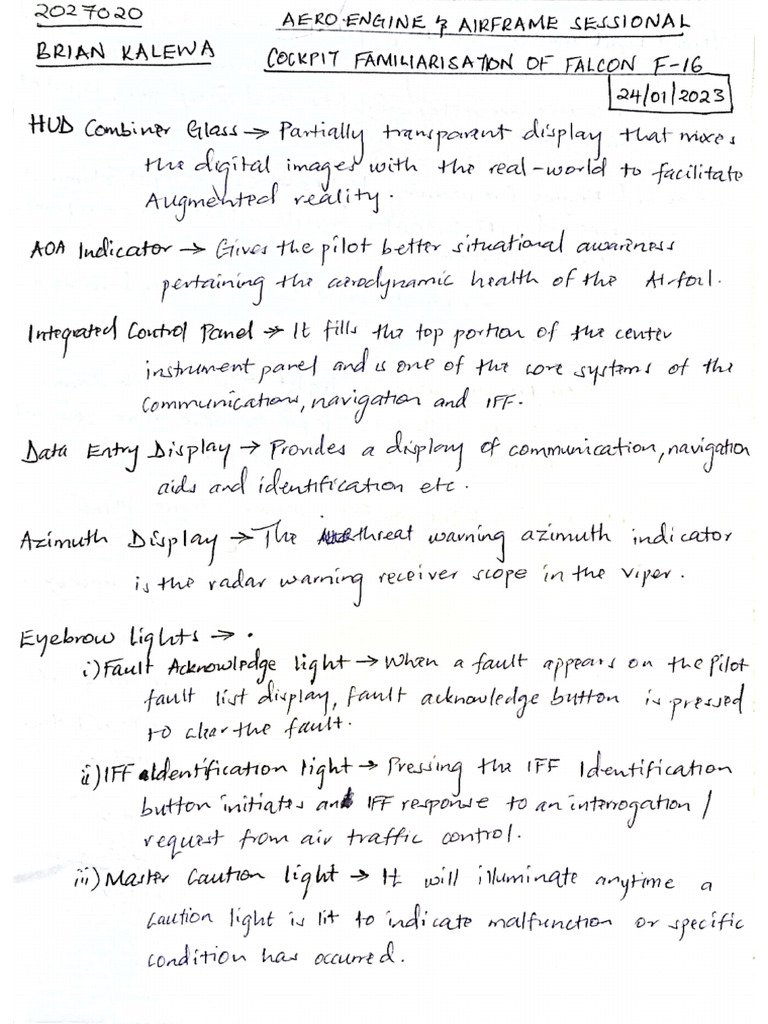 2027020
AERO-ENGINE & AIRFRAME SESSIONAL
BRIAN KALEWA
COCKPIT FAMILIARISATION OF FALCON F-16
24/01/2023
HUD Combiner Glass → Partially transparent display that mixes
the digital images with the real-world to facilitate
Augmented reality.
AOA Indicator → Gives the pilot better situational awareness
pertaining the aerodynamic health of the Airfoil.
Integrated Control Panel → It fills the top portion of the center
instrument panel and is one of the core systems of the
communication, navigation and IFF.
Data Entry Display → Provides a display of communication, navigation
aids and identification etc.
Azimuth Display → The threat warning azimuth indicator
is the radar warning receiver scope in the viper.
Eyebrow lights → •
i) Fault Acknowledge light → When a fault appears on the Pilot
fault list display, fault acknowledge button is pressed
to clear the fault.
ii) IFF Identification light → Pressing the IFF Identification
button initiates an IFF response to an interrogation /
request from air traffic control.
iii) Master Caution light → It will illuminate anytime a
caution light is lit to indicate malfunction or specific
condition has occurred.